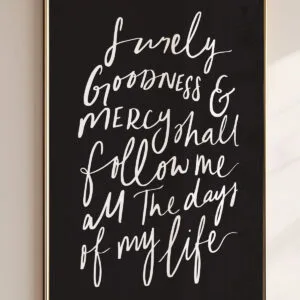 Surely
GOODNESS &
MERCY shall
follow me
all The days
of my life